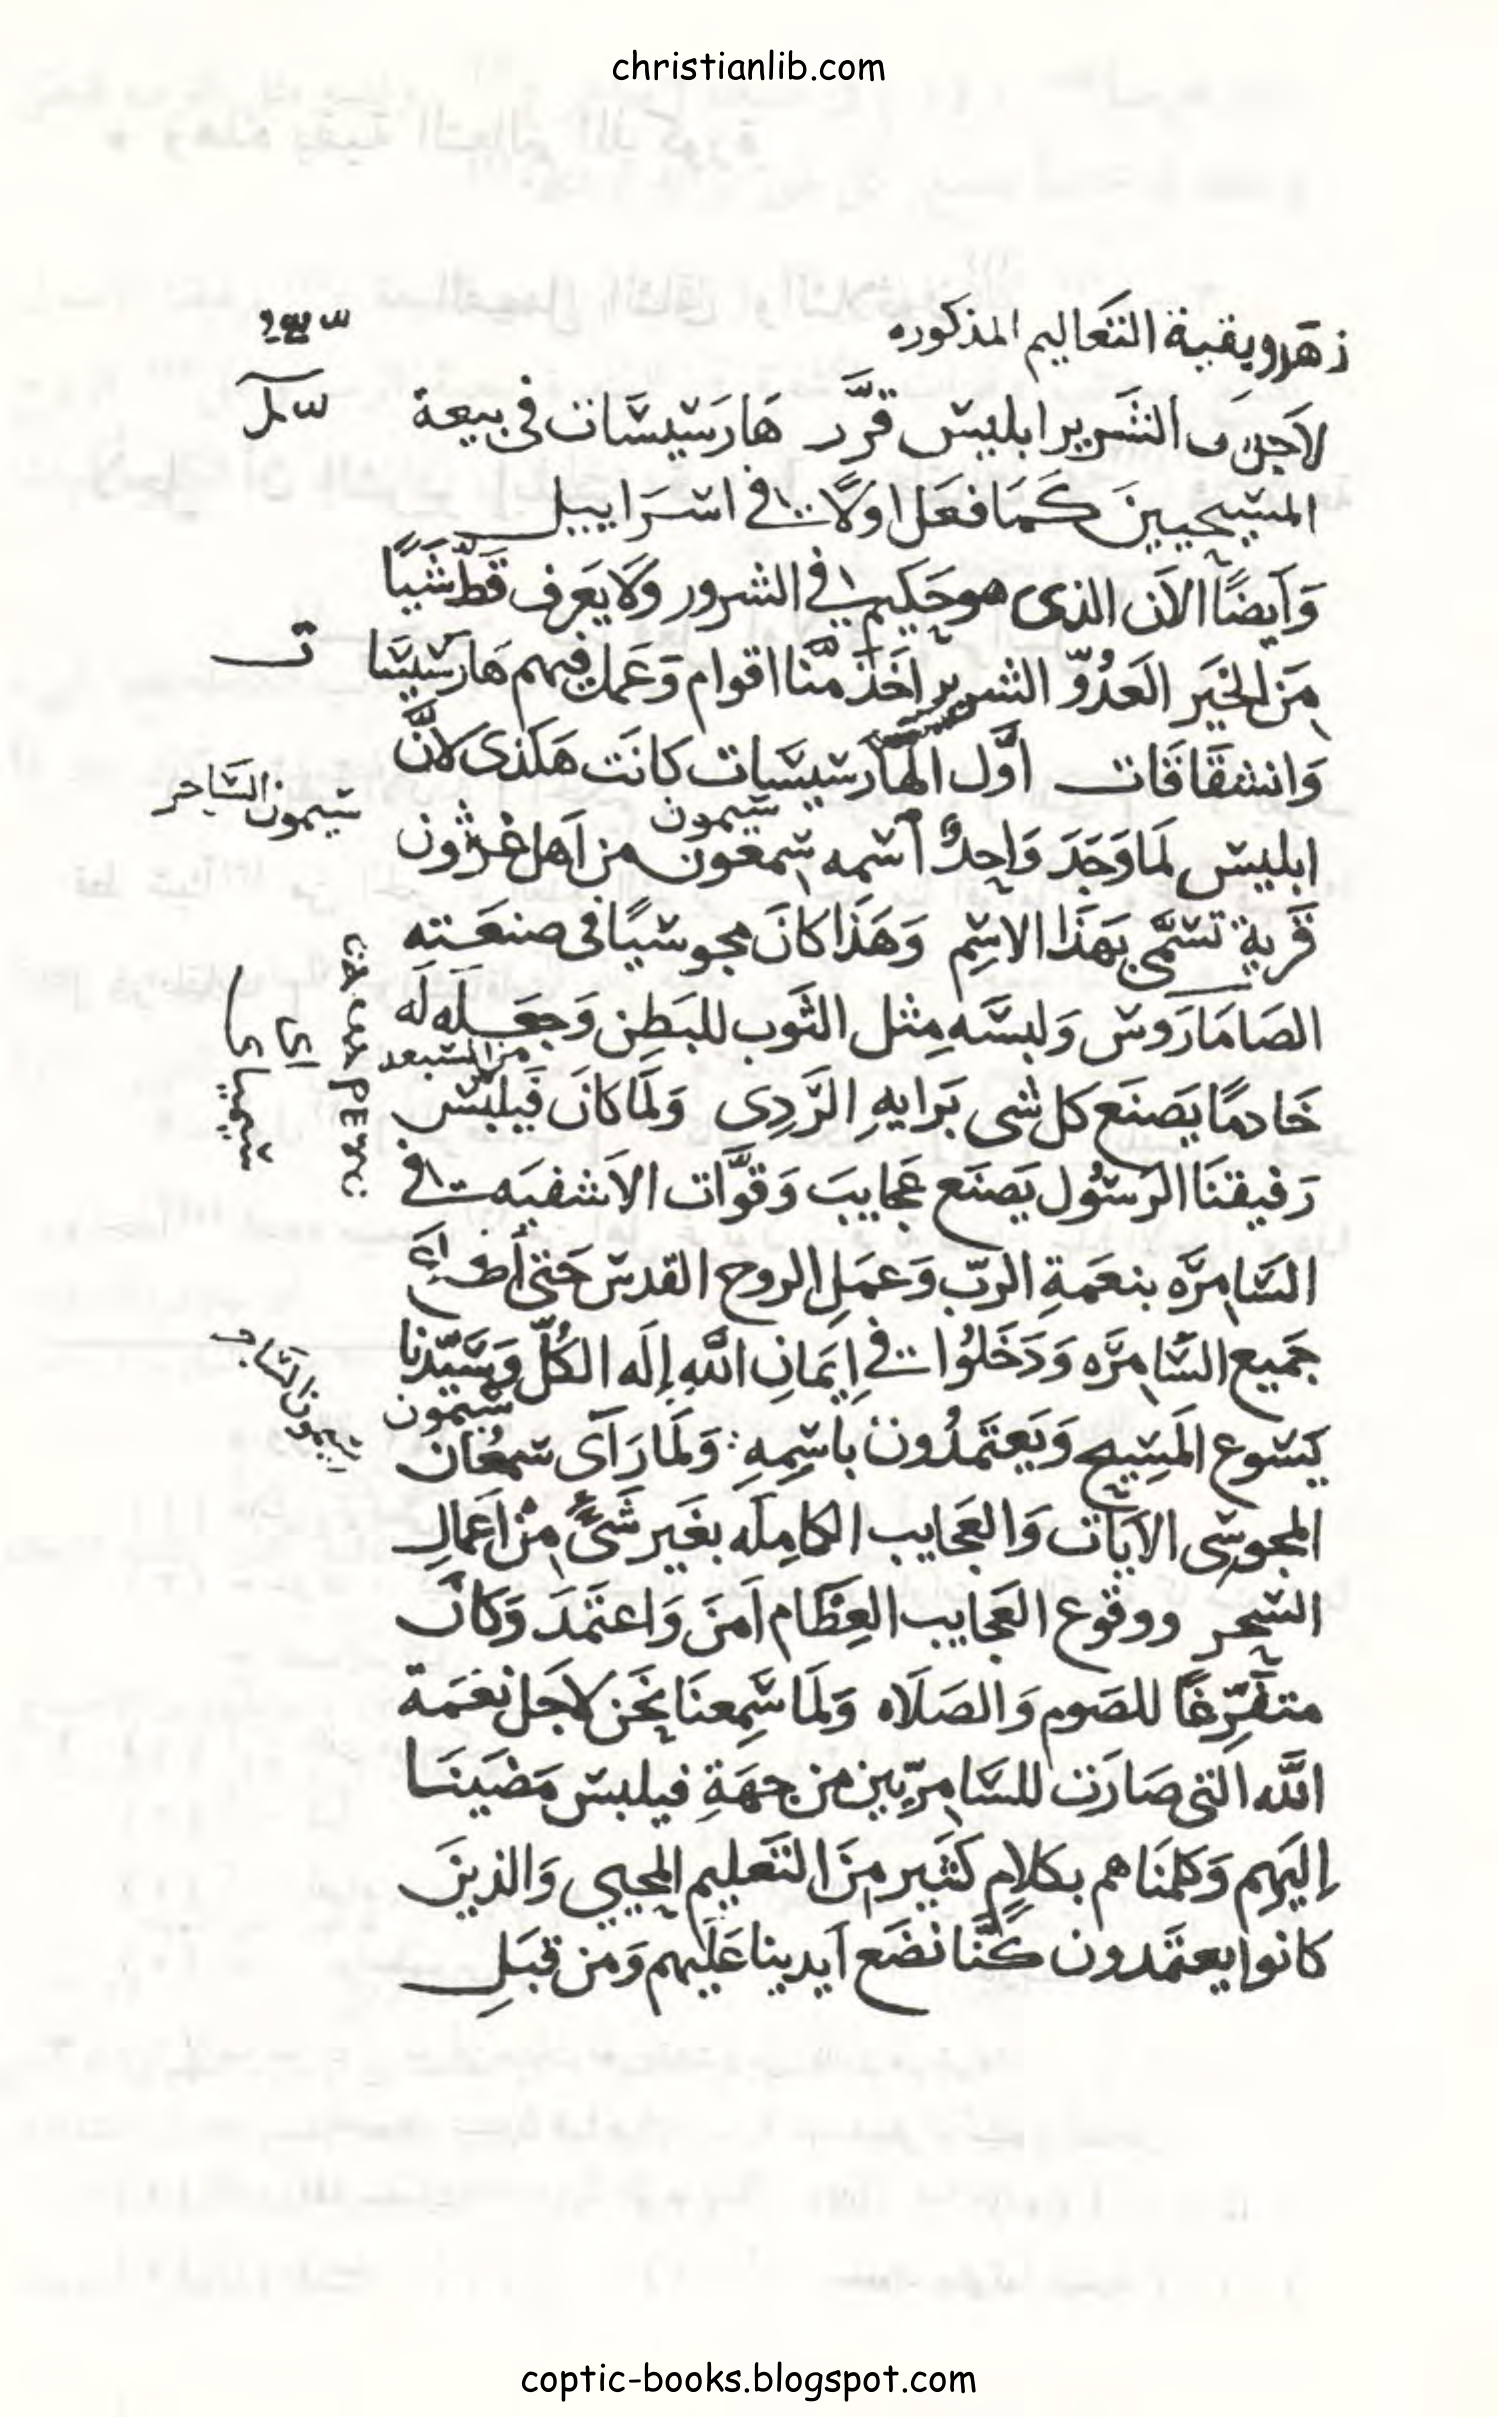 christianlib.com
وبقية التعَاليم المذكوره
لاَجل الشرير ابليس قرَّر هَارَسيسَّات فى بيعة
المسيحيينَ كَمَا فعَل اولاً فى اسرَاييل
وَاَيضًا الاَن الذى هو حَكيم فى الشرور وَلا يَعَرف قَطّ شَيًا
مَن الخيَر العَدُوّ الشرير اخَذ منَّا اقوام وَعَمل فيهم هَارسيسَات
وَانشقَاقَات اوَّل الهَارسيسَات كانَت هَكذى لانَّ
سيمون السَاحر
سيمون
ابليس لمَا وَجَدَ وَاحِدٌ اسمه سمعون من اَهل
قَرية تسَمَّى بهَذَا الاسِم وَهَذَا كانَ مجوسيًا فى صنعَته
وَلبسَّه مِثل الثَوب للبَطن وَجعَله لَه
من السبعه
خَادمًا يَصنَع كل شى برَايهِ الرَدِى وَلمَّا كانَ فَيلبَّس
رَفيقنَا الرسُول يَصنَع عَجايبَ وَقوَّات الاَشفيَه فى
السَامرَّه بنعمَةِ الربّ وَعمَل الروح القدس حَتى
جَميع السَامرَّه وَدَخَلُوا فى اِيمَانِ اللَّهِ اِلَه الكُلّ وَسَيّدنا
سيمون
يَسوع المَسيح وَيَعتَمدُون باسِمهِ وَلمَا رَآى سمعَان
المجوسى الاَيَات وَالعَجايب الكامِلَه بغَير شَىًّ مِن اَعمَالِ
السِحر ووقوع العَجايب العِظَام اَمنَ وَاعتَمَدَ وَكانَ
متفَرِّغًا للصَوم وَالصَلَاه وَلمَا سَمِعنَا نحَن لاجَل نعَمَة
اللَّه التى صَارَت للسَامرِّيين من جهَةِ فيلبس مَضَينَا
اليَهم وَكلمنَاهم بكلامٍ كثَير منَ التعَليم المحيى وَالذينَ
كانوا يعتمَدون كنَّا نضَع اَيدينا عَلَيهم وَمن قبَلِ
coptic-books.blogspot.com